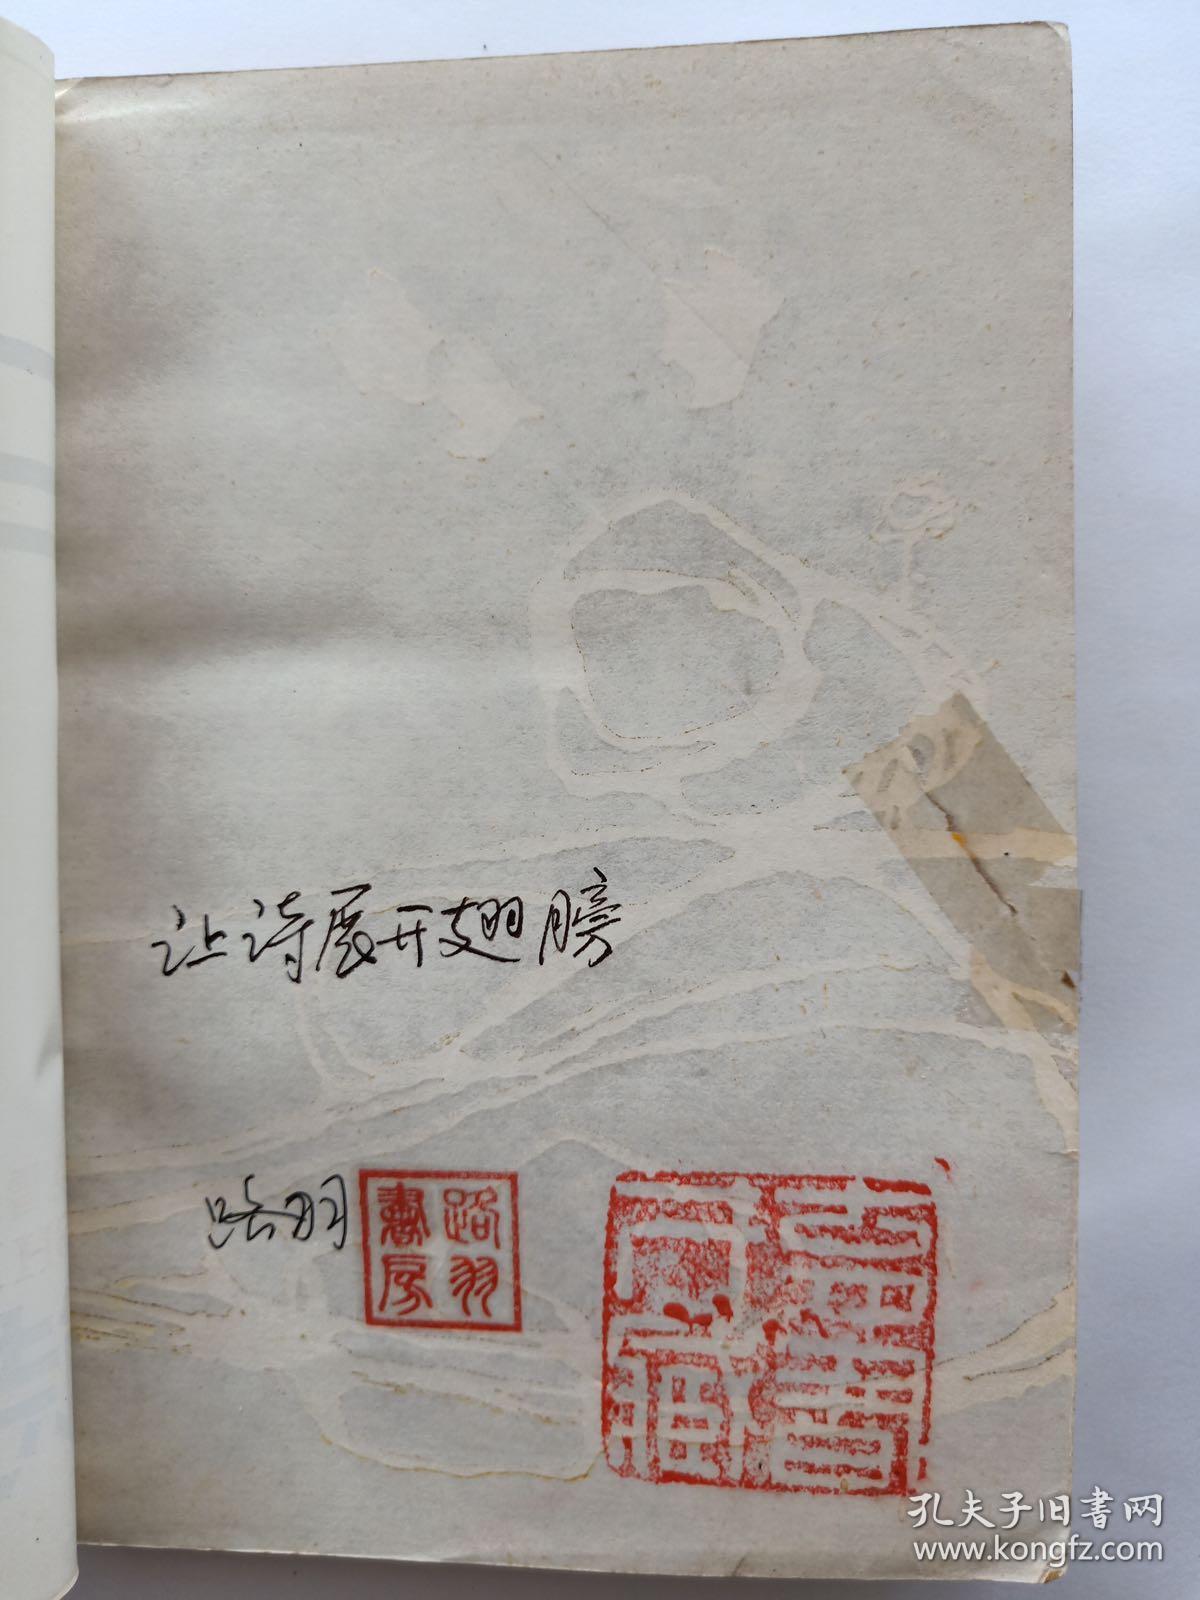 让诗展开翅膀
路羽
路羽
書房
孔夫子旧書网
www.kongfz.com